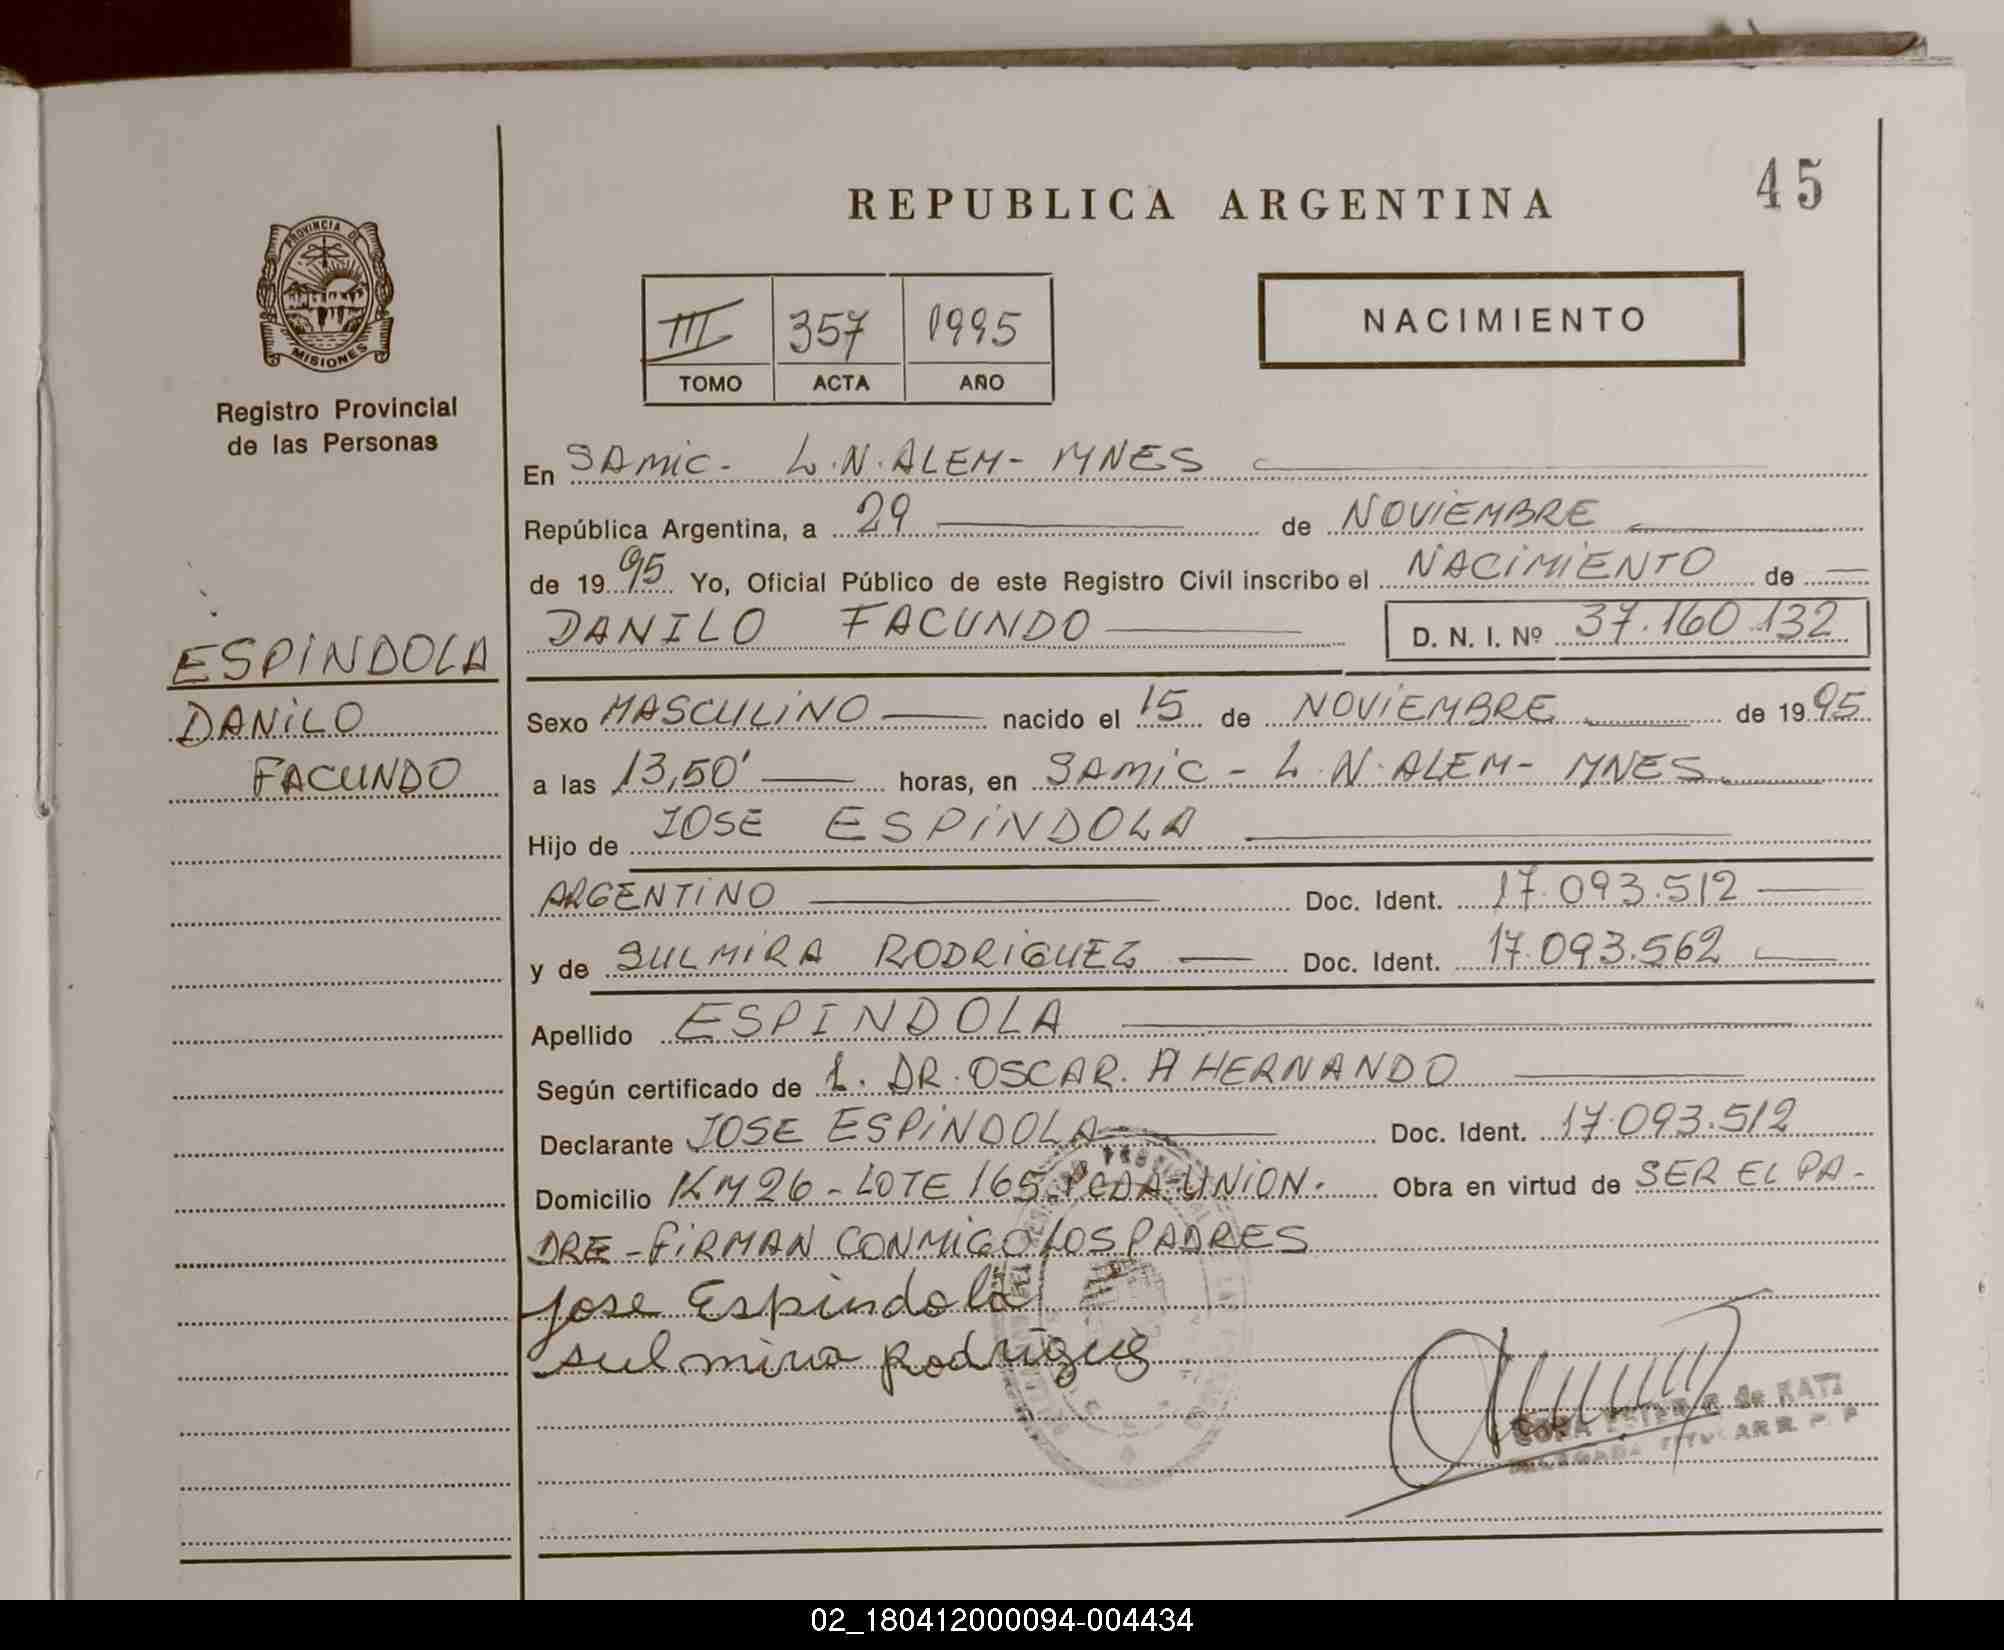 45
REPUBLICA ARGENTINA
PROVINCIA DE
MISIONES
Registro Provincial
de las Personas
III 357 1995
TOMO ACTA AÑO
NACIMIENTO
ESPINDOLA
DANILO
FACUNDO
En SAMIC - L.N.ALEM - MNES
República Argentina, a 29 de NOVIEMBRE
de 1995 Yo, Oficial Público de este Registro Civil inscribo el NACIMIENTO de
DANILO FACUNDO D. N. I. Nº 37.160.132
Sexo MASCULINO nacido el 15 de NOVIEMBRE de 1995
a las 13,50' horas, en SAMIC - L.N.ALEM - MNES
Hijo de JOSE ESPINDOLA
ARGENTINO Doc. Ident. 17.093.512
y de SULMIRA RODRIGUEZ Doc. Ident. 17.093.562
Apellido ESPINDOLA
Según certificado de L. DR. OSCAR. A HERNANDO
Declarante JOSE ESPINDOLA Doc. Ident. 17.093.512
Domicilio KM 26 - LOTE 165 - PCDA UNION. Obra en virtud de SER EL PA-
DRE - FIRMAN CONMIGO LOS PADRES
Jose Espindola
sulmira Rodriguez
de KATZ
02_180412000094-004434